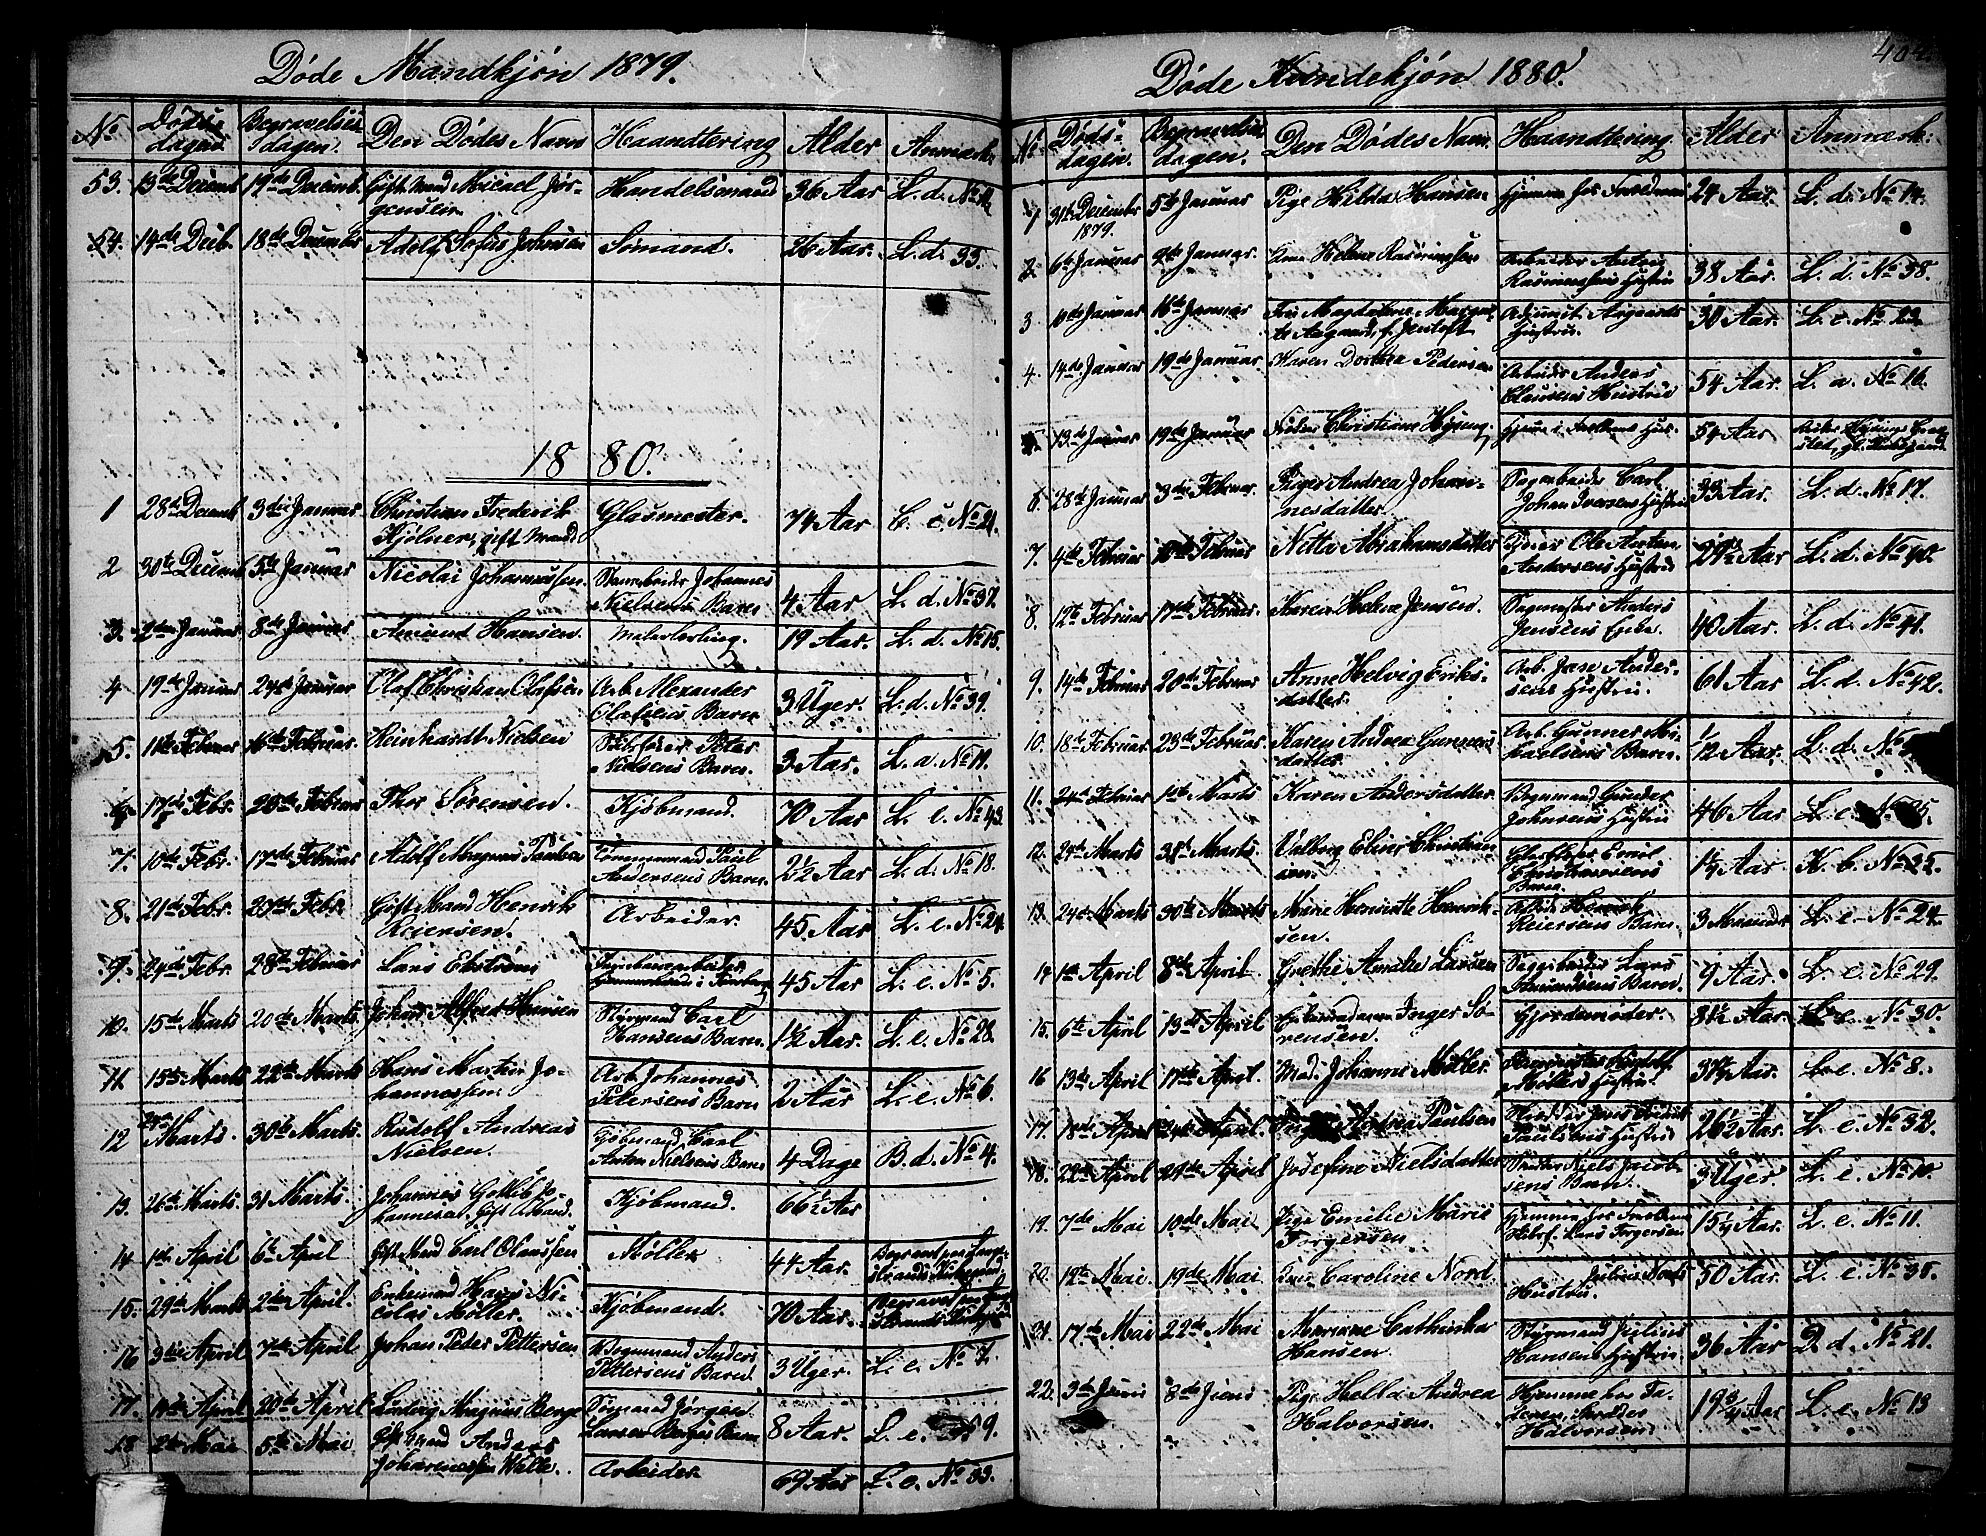 Døde Mandkjøn 1879.
No Dødsdagen Begravelsesdagen. Den Dødes Navn Haandtering Alder Anmærk.
53. 13de Decemb 19de Decemb. Gift Mand Micael Jør- Handelsmand 36 Aar L. d. No
gensen
54. 14de Decb. 18de December Adolf Sofus Johnsen Sømand. 26 Aar. L. d. 33.
1880.
1 28de Decemb 3die Januar Christian Frederik Glasmester. 74 Aar No 21.
Kjølner, gift Mand
2 30te Decemb 5te Januar Nicolai Johannessen. Johannes
Nielsens Barn 4 Aar L. d. No 37.
3. Januar 8de Januar Amund Hansen. Malerlærling. 19 Aar. L. d. No 15.
4 19de Januar 24de Januar Olaf Christian Olafsen Arb. Alexander
Olafsens Barn 3 Uger. L. d. No 39.
5. 11te Februar 16de Februar. Reinhardt Nielsen Peter
Nielsens Barn. 3 Aar. L. a. No 11.
6. 17de Febr. Februar Thor Sørensen. Kjøbmand. 70 Aar L. e. No 43.
7. 10de Febr. 17de Februar Adolf Magnus Paulsen Tømmermand Paul
Andersens Barn. 2½ Aar L. d. No 18.
8. 21de Febr. 27de Febr. Gift Mand Henrik Arbeider. 45 Aar L. e. No
Reiersen.
9. 24de Febr. 28de Februar Lars Ekstrøm 45 Aar L. e. No 5.
10. 15de Marts 20de Marts. Johan Alfred Hansen Styrmand Carl
Hansens Barn. 1½ Aar. L. e. No 28.
11. 15de Marts 22de Marts Hans Martin Jo- Arb. Johannes
hannessen. Petersens Barn 2 Aar L. e. No 6.
12 Marts. 30te Marts. Rudolf Andreas Kjøbmand Carl
Nielsen. Anton Nielsens Barn 4 Dage B. d. No 4.
13. 26de Marts. 31 Marts. Johannes Gottlib Jo- Kjøbmand. 66½ Aar
hannesen, Gift Mand.
14 1ste April 6te April Gift Mand Carl Olaussen Møller 44 Aar.
15. 29de Marts 2den April. Enkemand Hans Ni- Kjøbmand. 70 Aar.
colai Møller.
16 3die April 7de April Johan Peder Pettersen Bogmand Anders
Pettersens Barn. 3 Uger. L. e. No 7.
17. 14de April 20de April Ludvig Magnus Berge Sømand Jørgen
Larsen Berges Barn 8 Aar. L. e. No 9.
18 2den Mai 5te Mai Gift Mand Anders
Johannessen Walle. Arbeider 67 Aar L. e. No 33.
404.
Døde Kvindekjøn 1880.
No Dødsdagen. Begravelsesdagen. Den Dødes Navn Haandtering Alder Anmærk.
1 31te December 5te Januar Pige Hilda Hansen Hjemme hos Forældrene 24 Aar. L. d. No 14.
1879.
2. 6te Januar 9de Januar. Helene Rasmussen Arbeider Anton
Rasmussens Hustru 38 Aar. L. d. No 38.
3 10de Januar 16de Januar Fru Magdalene Margre- Adjunkt Aagaards
the Aagaard, f. Jentoft Hustru. 30 Aar. L. c. No 23.
4. 14de Januar 19de Januar. Karen Dorthea Pedersen Arbeider Anders
Clausens Hustru 54 Aar. L. a. No 16.
5. 13de Januar 19de Januar Christiane Hysing. 54 Aar
6. 28de Januar 3die Februar. Pige Andrea Johan- Carl
nesdatter. Johan Iversens Hustru 33 Aar. L. d. No 17.
7. 4de Februar Februar Netta Abrahamsdatter Ole Anton
Andersens Hustru Aar L. d. No 40.
8. 12te Februar 17de Februar. Karen Helene Jensen. Anders
Jensens Enke. 40 Aar. L. d. No 41.
9. 14de Februar 20de Februar Anne Helvig Eriks- Arb. Jens Ander-
datter. sens Hustru. 61 Aar L. d. No 42.
10. 18de Februar 23de Februar. Karen Andrea Gunners- Arb. Gunner Mi-
datter. kaelsens Barn. 1/12 Aar. L. d. No
11. Februar 1ste Marts Karen Andersdatter
Johnsens Hustru 46 Aar L. e. No 25.
12. 24de Marts 31te Marts. Valborg Eline Christian- Emil
sen. Christiansens
Barn. 1¼ Aar K. b. No 22.
13. Marts 30te Marts Marie Henriette Henrik- Arbeid. Henrik
sen. Reiersens Barn. 3 Maaneder L. e. No 24.
14 1ste April 8de April Grethe Amalie Larsen Lars
Amundsens Barn. 9 Aar. L. e. No 29.
15. 6te April 13de April Inger Sø- Gjordemoder. 81½ Aar L. e. No 30.
rensen.
16 13de April 17de April. Mad. Johanne Møller
Møllers Hustru. Aar. L. e. No 8.
17. 18de April 24de April. Andrea Paulsen
Paulsens Hustru 26½ Aar. L. e. No 32.
18. 22de April 29de April Josefine Nielsdatter Niels Jacob-
sens Barn. 3 Uger. L. e. No 10.
19. 7de Mai 10de Mai Pige Emilie Marie Hjemme hos
Torgersen Lars Torgersen 15¼ Aar. L. e. No 11.
20. 12te Mai 19de Mai Caroline Nord. Julius Nords
Hustru. 50 Aar. L. e. No 35.
21. 17de Mai 22de Mai Mariane Cathinka Styrmand Julius
Hansen. Hansens Hustru. 36 Aar D. d. No 21.
22. 3die Juni 8de Juni Pige Hella Andrea Hjemme hos Fa-
Halvorsen. deren,
Halvorsen. 19¾ Aar L. e. No 13